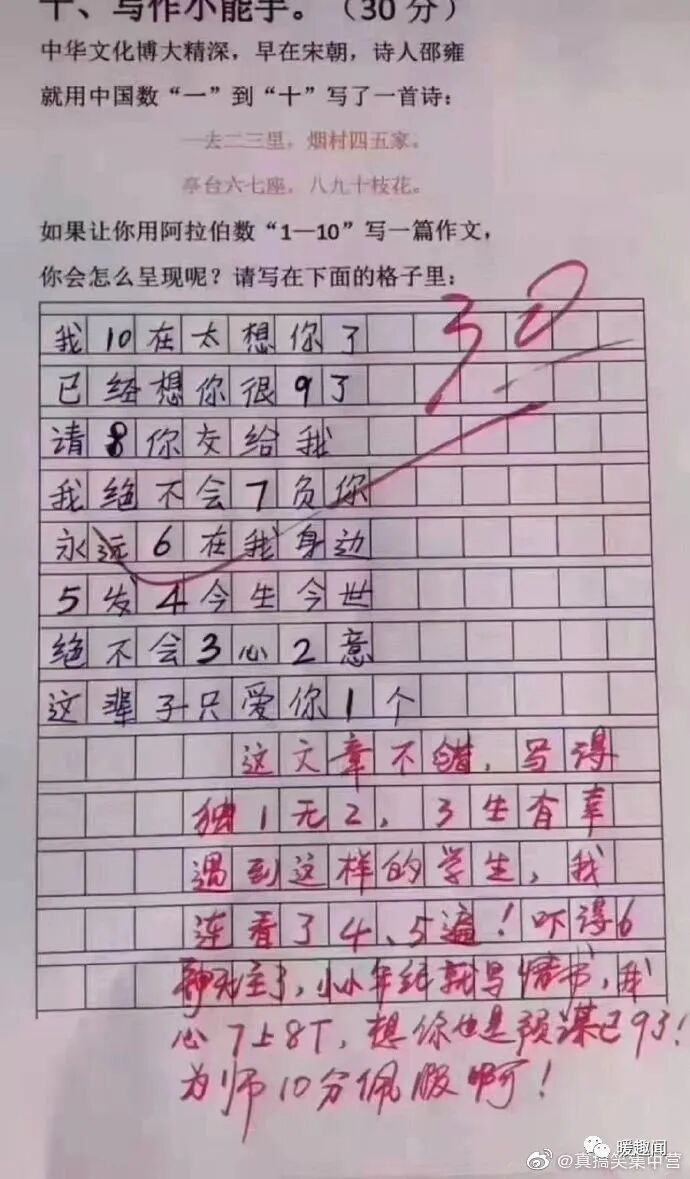 十、写作小能手。（30分）
中华文化博大精深，早在宋朝，诗人邵雍
就用中国数“一”到“十”写了一首诗：
一去二三里，烟村四五家。
亭台六七座，八九十枝花。
如果让你用阿拉伯数“1—10”写一篇作文，
你会怎么呈现呢？请写在下面的格子里：
30
我10在太想你了
已经想你很9了
请8你交给我
我绝不会7负你
永远6在我身边
5发4今生今世
绝不会3心2意
这辈子只爱你1个
这文章不错，写得
独1无2，3生有幸
遇到这样的学生，我
连看了4、5遍！吓得6
神无主了，小小年纪就写情书，我
心7上8下，想你也是预谋已9了！
为师10分佩服啊！
暖趣闻
@真搞笑集中营